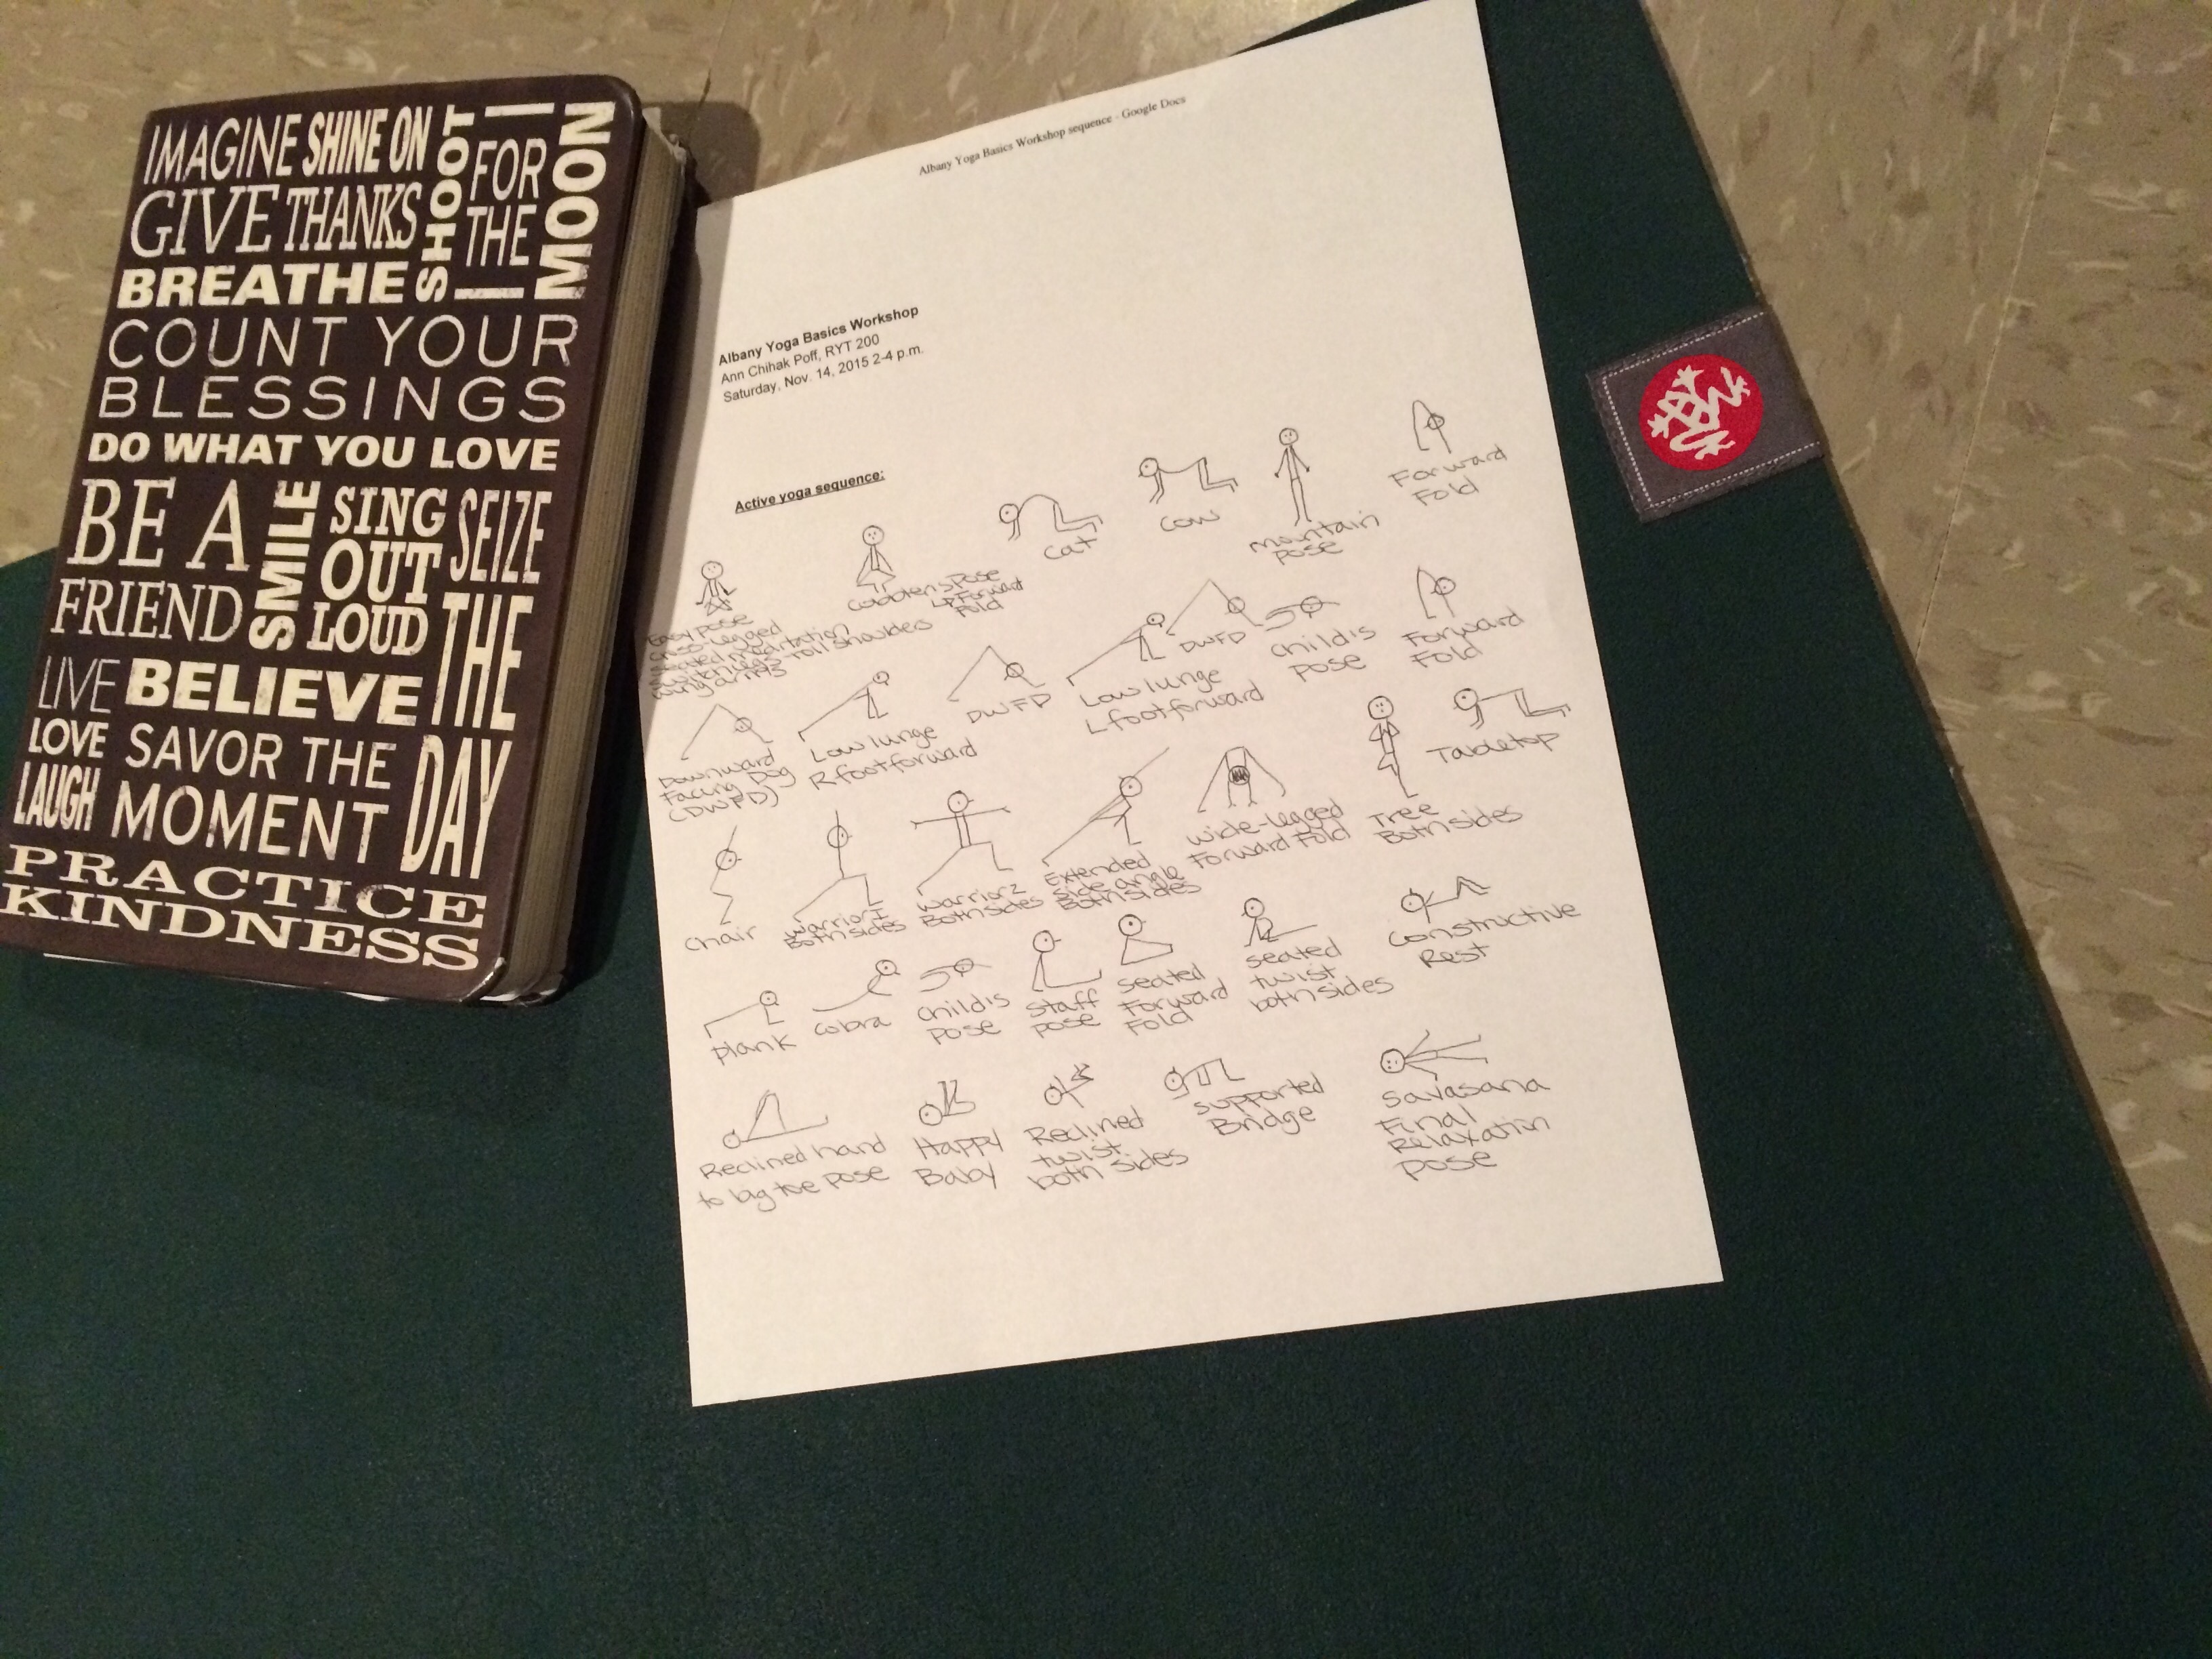 IMAGINE SHINE ON
GIVE THANKS
SHOOT
FOR
THE
MOON
BREATHE
COUNT YOUR
BLESSINGS
DO WHAT YOU LOVE
BE A
FRIEND
SMILE
SING
OUT
LOUD
SEIZE
THE
DAY
LIVE BELIEVE
LOVE
LAUGH
SAVOR THE
MOMENT
PRACTICE
KINDNESS
Albany Yoga Basics Workshop sequence - Google Docs
Albany Yoga Basics Workshop
Ann Chihak Poff, RYT 200
Saturday, Nov. 14, 2015 2-4 p.m.
Active yoga sequence:
Easy pose
legged
seated meditation
roll shoulders
arms
Cobblers Pose
Forward
Fold
Cat
Cow
Mountain
pose
Forward
Fold
Downward
Facing Dog
(DWFD)
Low lunge
R foot forward
DWFD
Low lunge
L foot forward
DWFD
Child's
pose
Forward
Fold
Chair
Warrior I
Both sides
Warrior 2
Both sides
Extended
side angle
Both sides
Wide-legged
Forward Fold
Tree
Both sides
Tabletop
Plank
Cobra
Child's
pose
Staff
pose
Seated
Forward
Fold
Seated
twist
both sides
Constructive
Rest
Reclined hand
to big toe pose
Happy
Baby
Reclined
twist
both sides
Supported
Bridge
Savasana
Final
Relaxation
pose